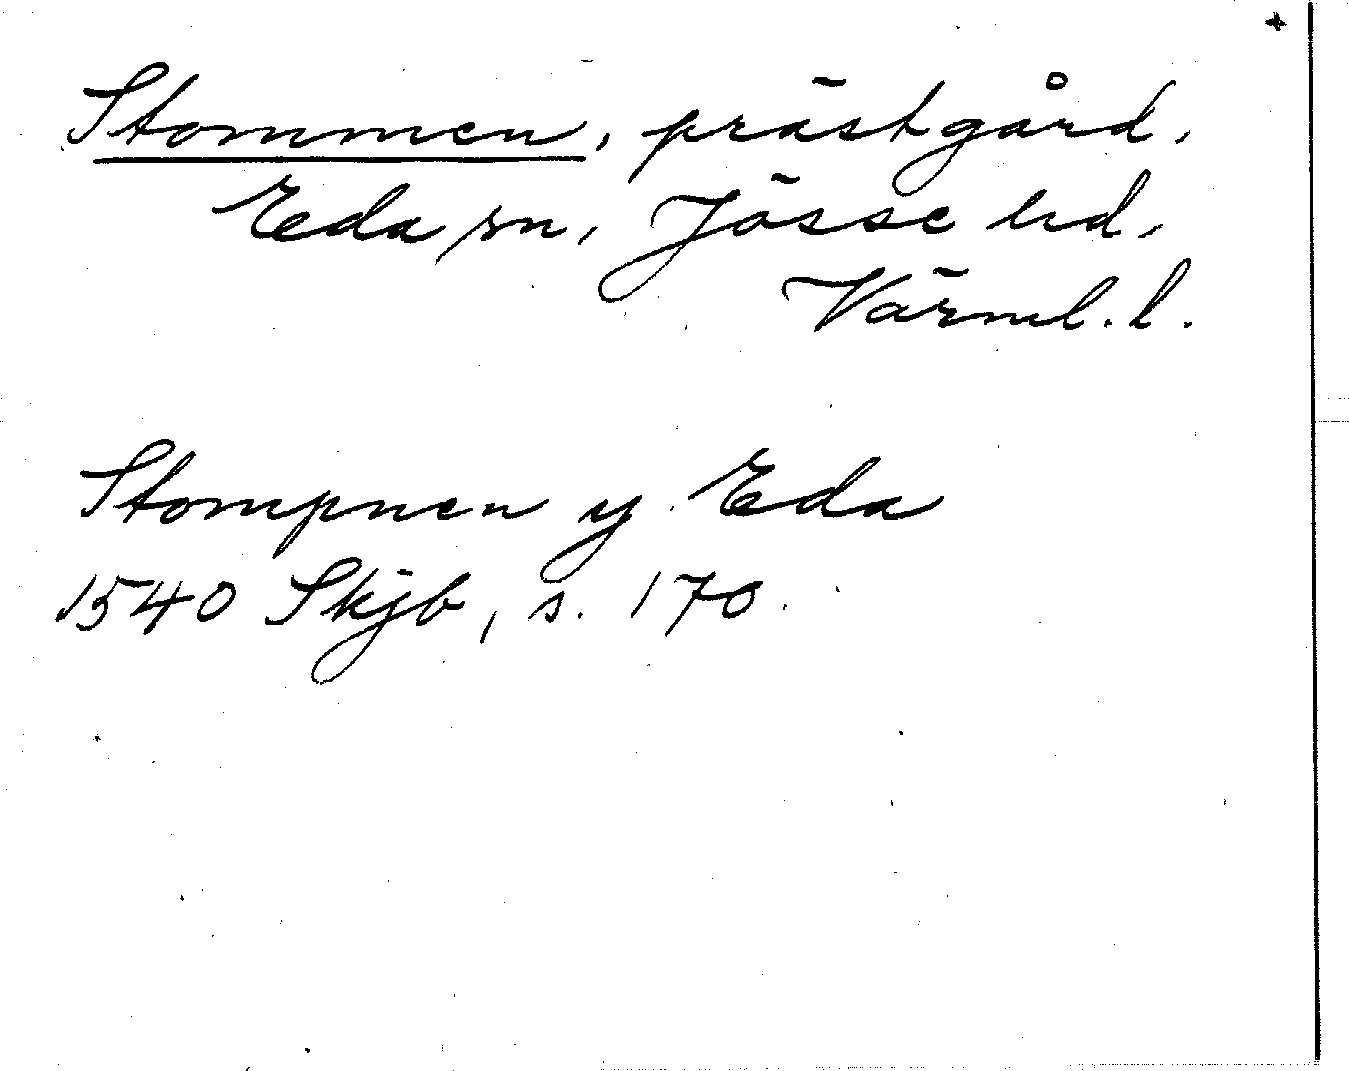 Stommen, prästgård,
Eda sn, Jösse hd,
Värml. l.
Stompnen y Eda
1540 Skjb, s. 170.